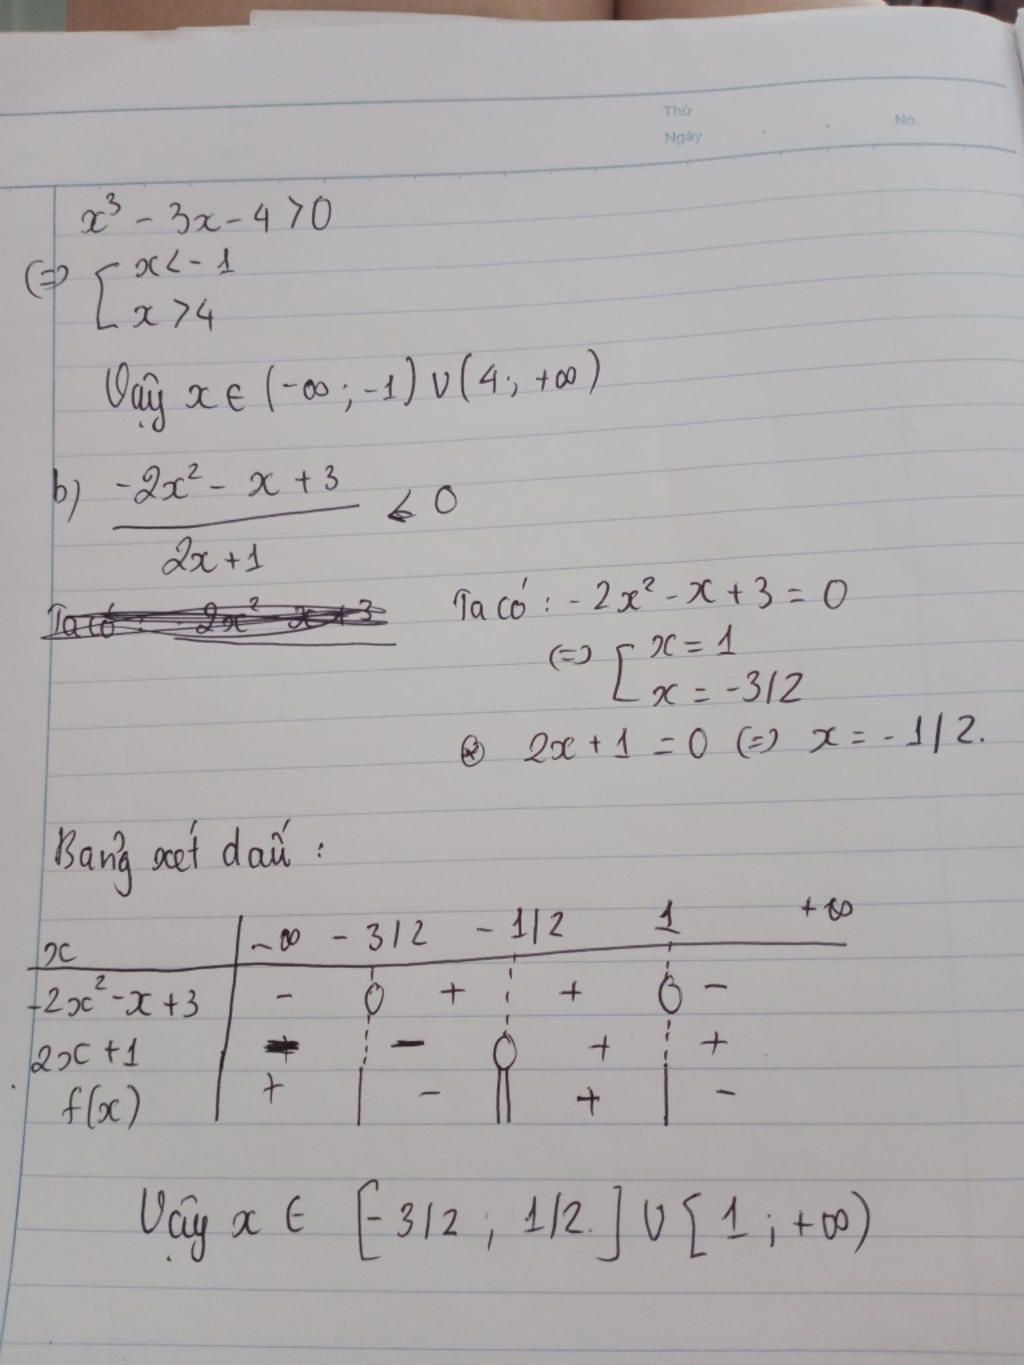 Thứ
Ngày
No.
x³ - 3x - 4 > 0
(=) [ x < - 1
x > 4
Vậy x ∈ (-∞ ; -1) ∪ (4 ; +∞)
b) (-2x² - x + 3) / (2x + 1) ≤ 0
Ta có : - 2x² - x + 3
Ta có : - 2x² - x + 3 = 0
(=) [ x = 1
x = - 3/2
⊛ 2x + 1 = 0 (=) x = - 1/2.
Bảng xét dấu :
x | -∞ - 3/2 - 1/2 1 +∞
-2x² - x + 3 | - 0 + + 0 -
2x + 1 | - - 0 + +
f(x) | + | - || + | -
Vậy x ∈ [- 3/2 ; 1/2.] ∪ [1 ; +∞)